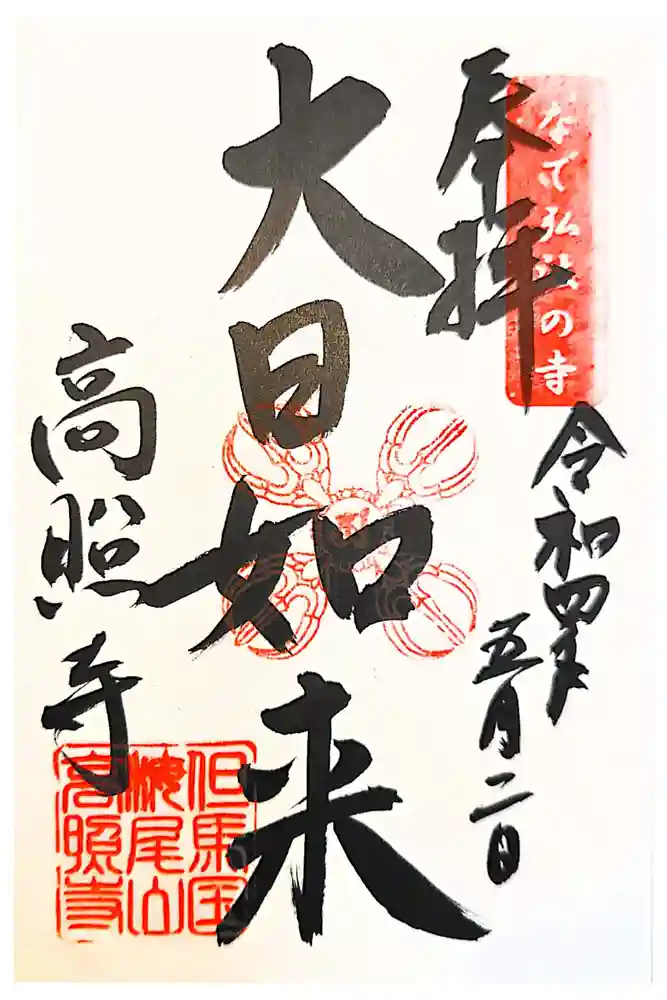 なで弘法の寺
奉拝
令和四年
五月二日
大日如来
高照寺
但馬国
妙尾山
高照寺